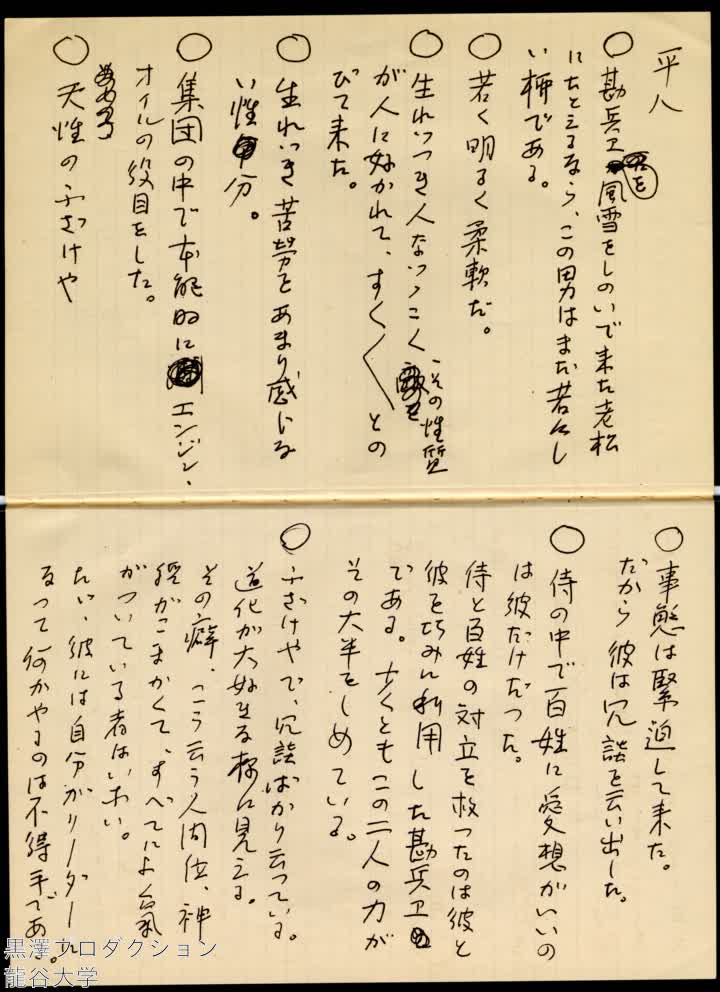 平八
○ 勘兵ヱを風雪をしのいで来た老松
にたとえるなら、この男はまだ若々し
い柄である。
○ 若く明るく柔軟だ。
○ 生れつき人なつっこく、その性質
が人に好かれて、すく〱との
びて来た。
○ 生れつき苦労をあまり感じな
い性分。
○ 集団の中で本能的にエンジン・
オイルの役目をした。
○ 天性のふざけや
○ 事態は緊迫して来た。
だから彼は冗談を云い出した。
○ 侍の中で百姓に愛想がいいの
は彼だけだった。
侍と百姓の対立を救ったのは彼と
彼を巧みに利用した勘兵ヱ
である。少くともこの二人の力が
その大半をしめている。
○ ふざけやで、冗談ばかり云っている。
道化が大好きな様に見える。
その癖、こう云う人間位、神
経がこまかくて、すべてによく気
がついている者はいない。
たゞ、彼には自分がリーダーに
なって何かやるのは不得手である。
黒澤プロダクション
龍谷大学